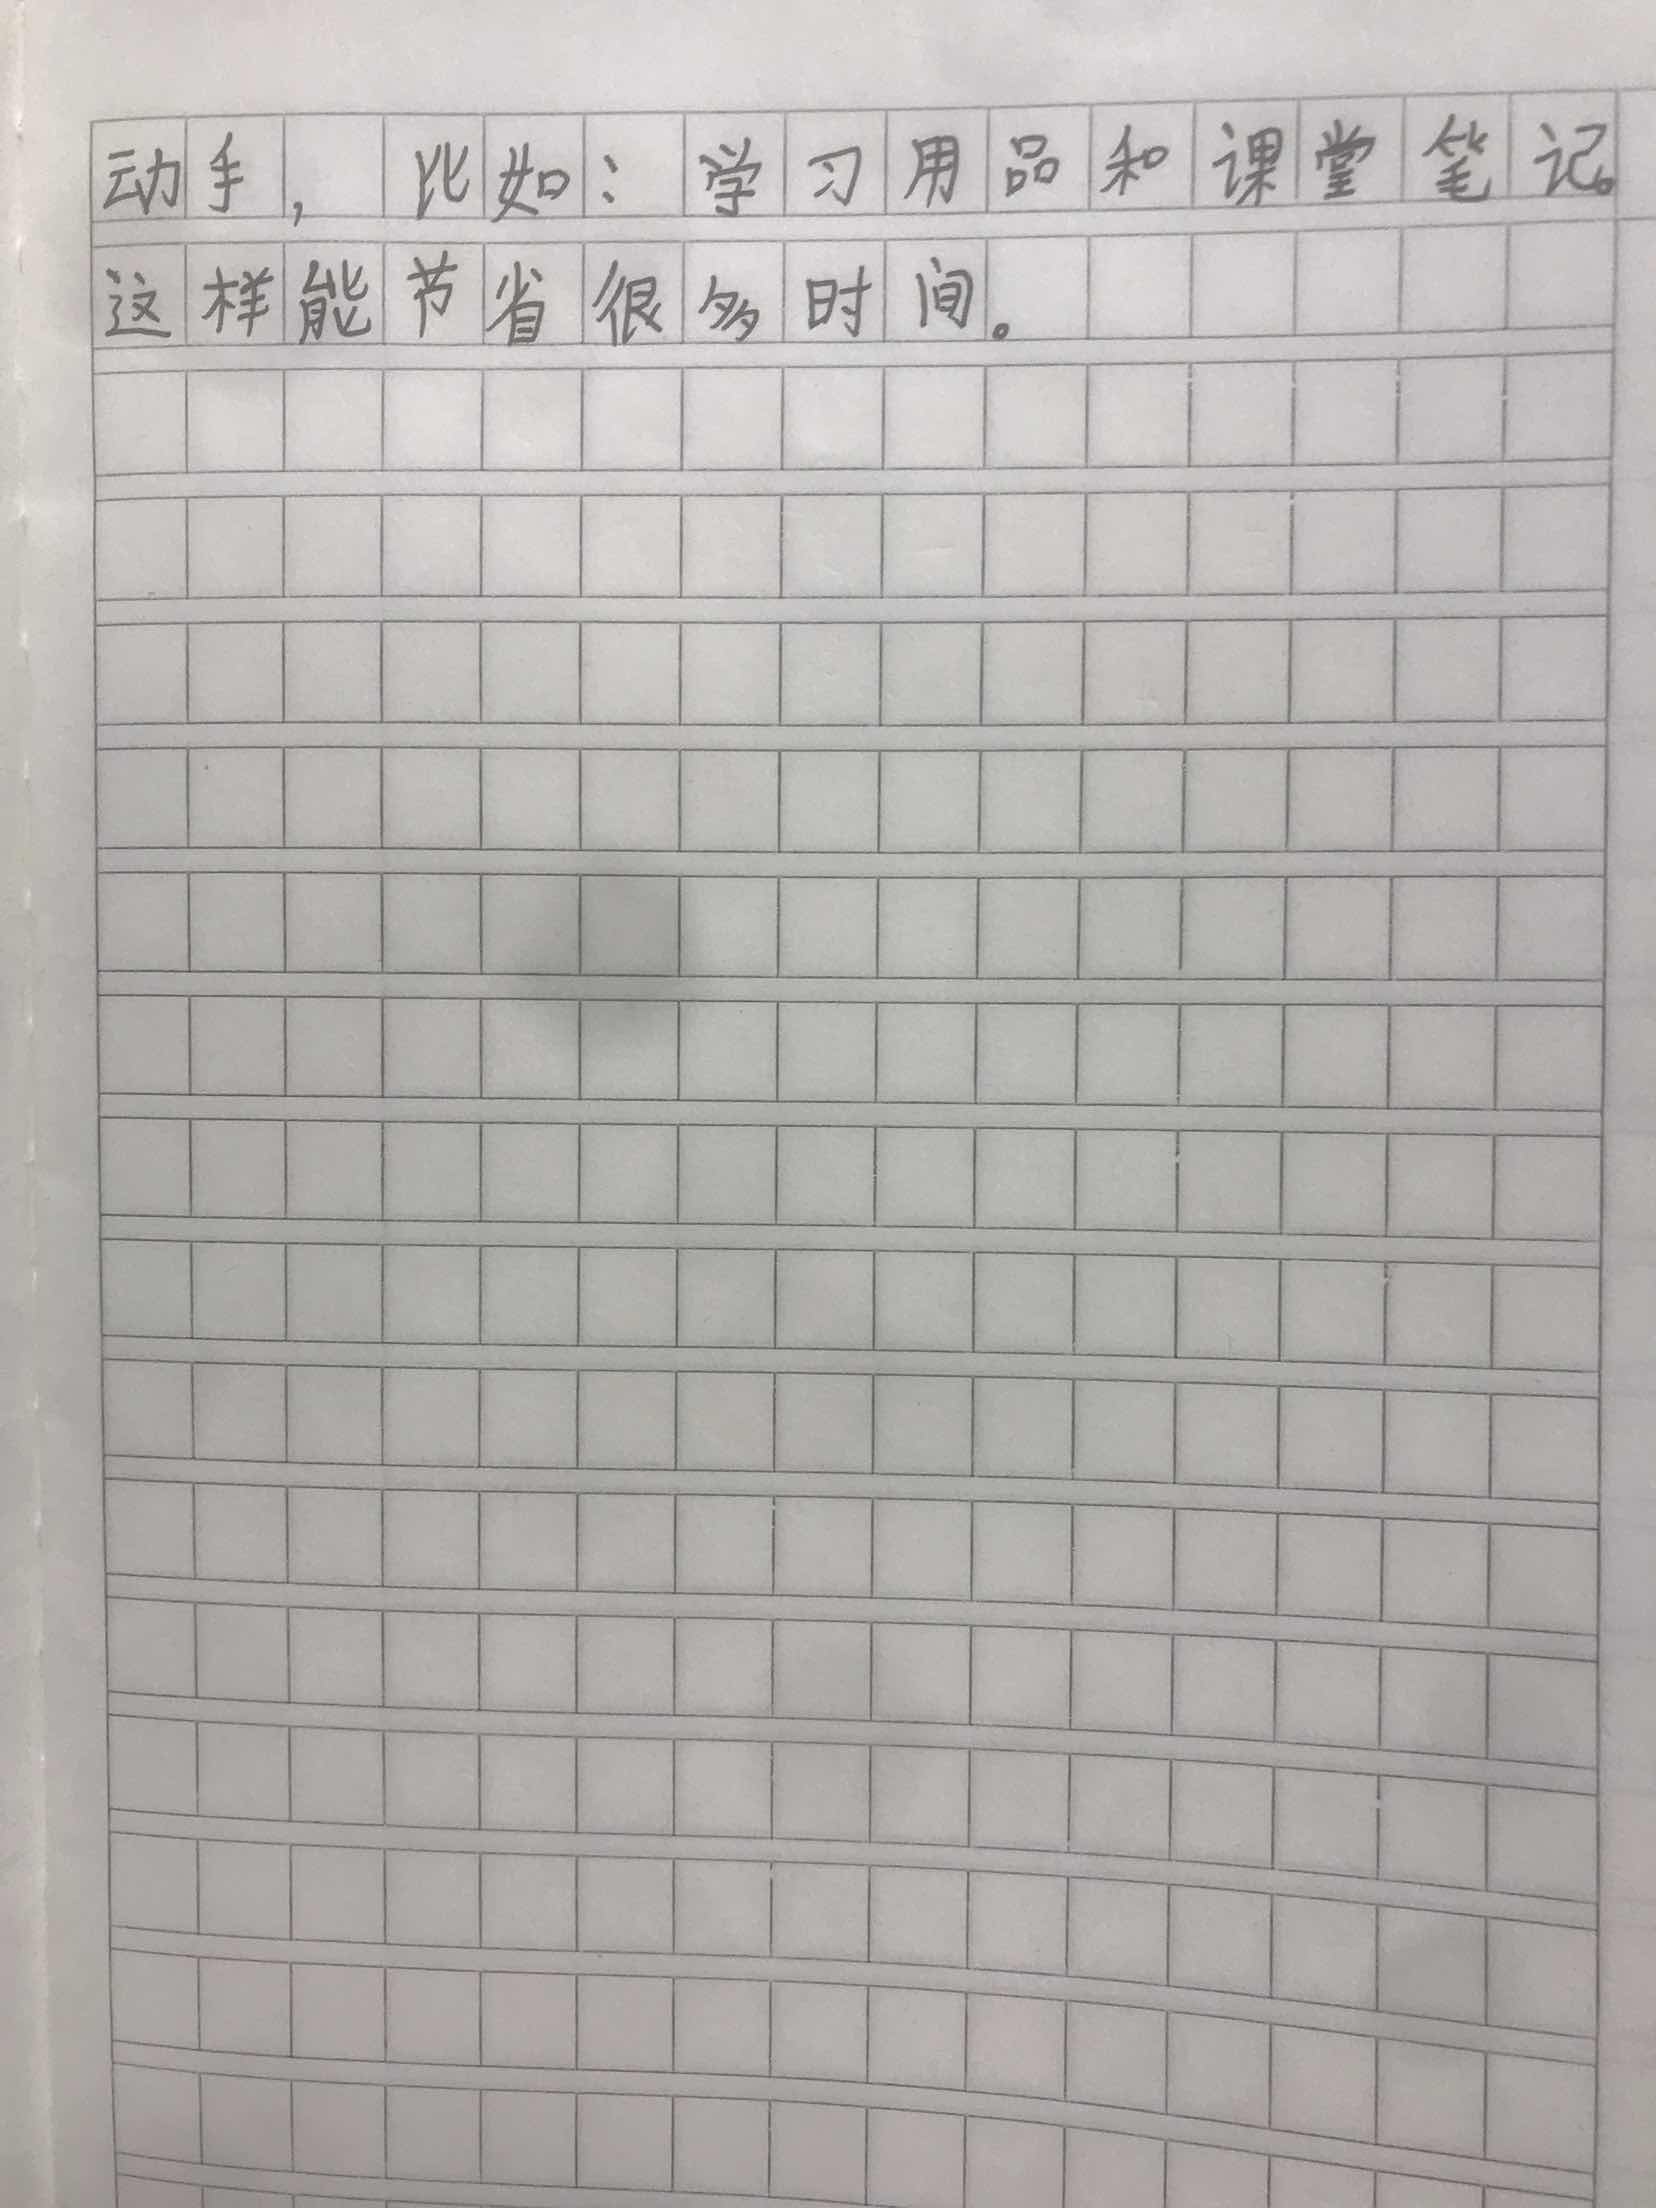 动手，比如：学习用品和课堂笔记。
这样能节省很多时间。